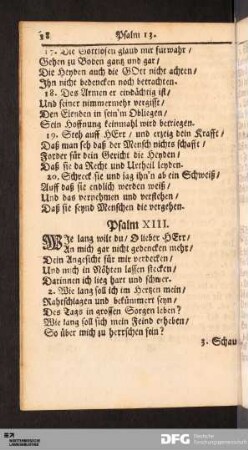 38 Psalm 13.
17. Die Gottlosen glaub mir fürwahr/
Gehen zu Boden gantz und gar/
Die Heyden auch die GOtt nicht achten/
Ihn nicht bedencken noch betrachten.
18. Des Armen er eindächtig ist/
Und seiner nimmermehr vergisst/
Den Elenden in sein'm Obliegen/
Sein Hoffnung keinmahl wird betriegen.
19. Steh auff HErr/ und erzeig dein Krafft/
Daß man seh daß der Mensch nichts schafft/
Forder für dein Gericht die Heyden/
Daß sie da Recht und Urtheil leyden.
20. Schreck sie und jag ihn'n ab ein Schweiß/
Auff daß sie endlich werden weiß/
Und das vernehmen und verstehen/
Daß sie seynd Menschen die vergehen.
Psalm XIII.
WIe lang wilt du/ O lieber HErr/
An mich gar nicht gedencken mehr/
Dein Angesicht für mir verdecken/
Und mich in Nöhten lassen stecken/
Darinnen ich lieg hart und schwer.
2. Wie lang soll ich im Hertzen mein/
Rahtschlagen und bekümmert seyn/
Des Tags in grossen Sorgen leben?
Wie lang soll sich mein Feind erheben/
So über mich zu herrschen sein?
3. Schau
DFG Deutsche
Forschungsgemeinschaft